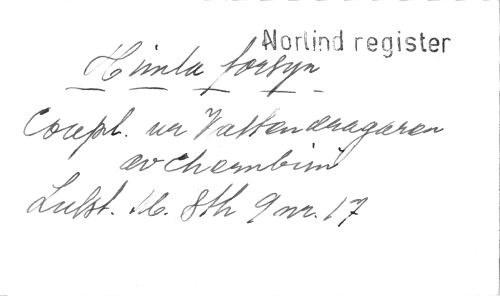 Norlind register
Himla försyn
Coupl. ur Vattendragaren
av Cherubini
Lulst. 16. 8th 9 nr. 17